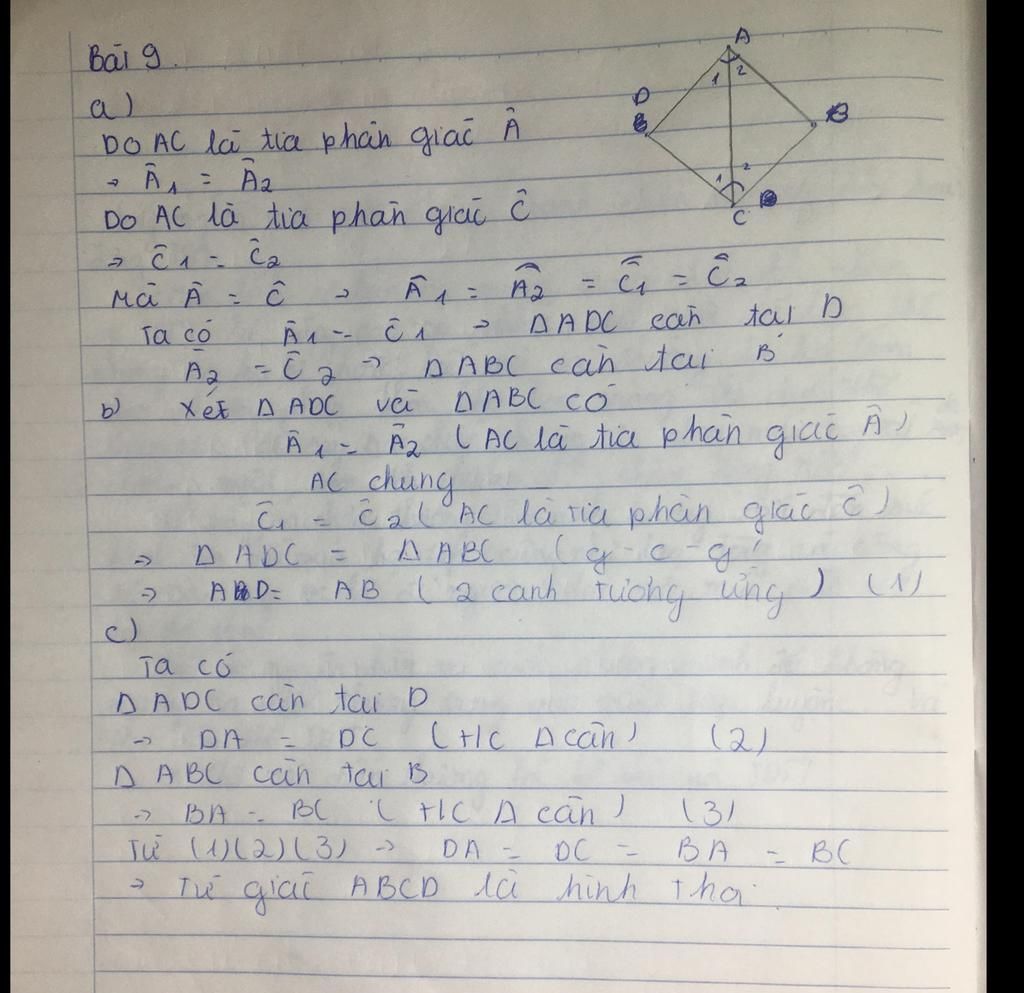 Bài 9.
a)
Do AC là tia phân giác Â
→ Â1 = Â2
Do AC là tia phân giác Ĉ
→ Ĉ1 = Ĉ2
Mà Â = Ĉ → Â1 = Â2 = Ĉ1 = Ĉ2
Ta có Â1 = Ĉ1 → ΔADC cân tại D
Â2 = Ĉ2 → ΔABC cân tại B
b) Xét ΔADC và ΔABC có
Â1 = Â2 (AC là tia phân giác Â)
AC chung
Ĉ1 = Ĉ2 (AC là tia phân giác Ĉ)
⇒ ΔADC = ΔABC (g-c-g)
⇒ AD = AB (2 cạnh tương ứng) (1)
c)
Ta có
ΔADC cân tại D
→ DA = DC (t/c Δ cân) (2)
ΔABC cân tại B
→ BA = BC (t/c Δ cân) (3)
Từ (1)(2)(3) → DA = DC = BA = BC
→ Tứ giác ABCD là hình thoi
A
1 2
D
B
1 2
C